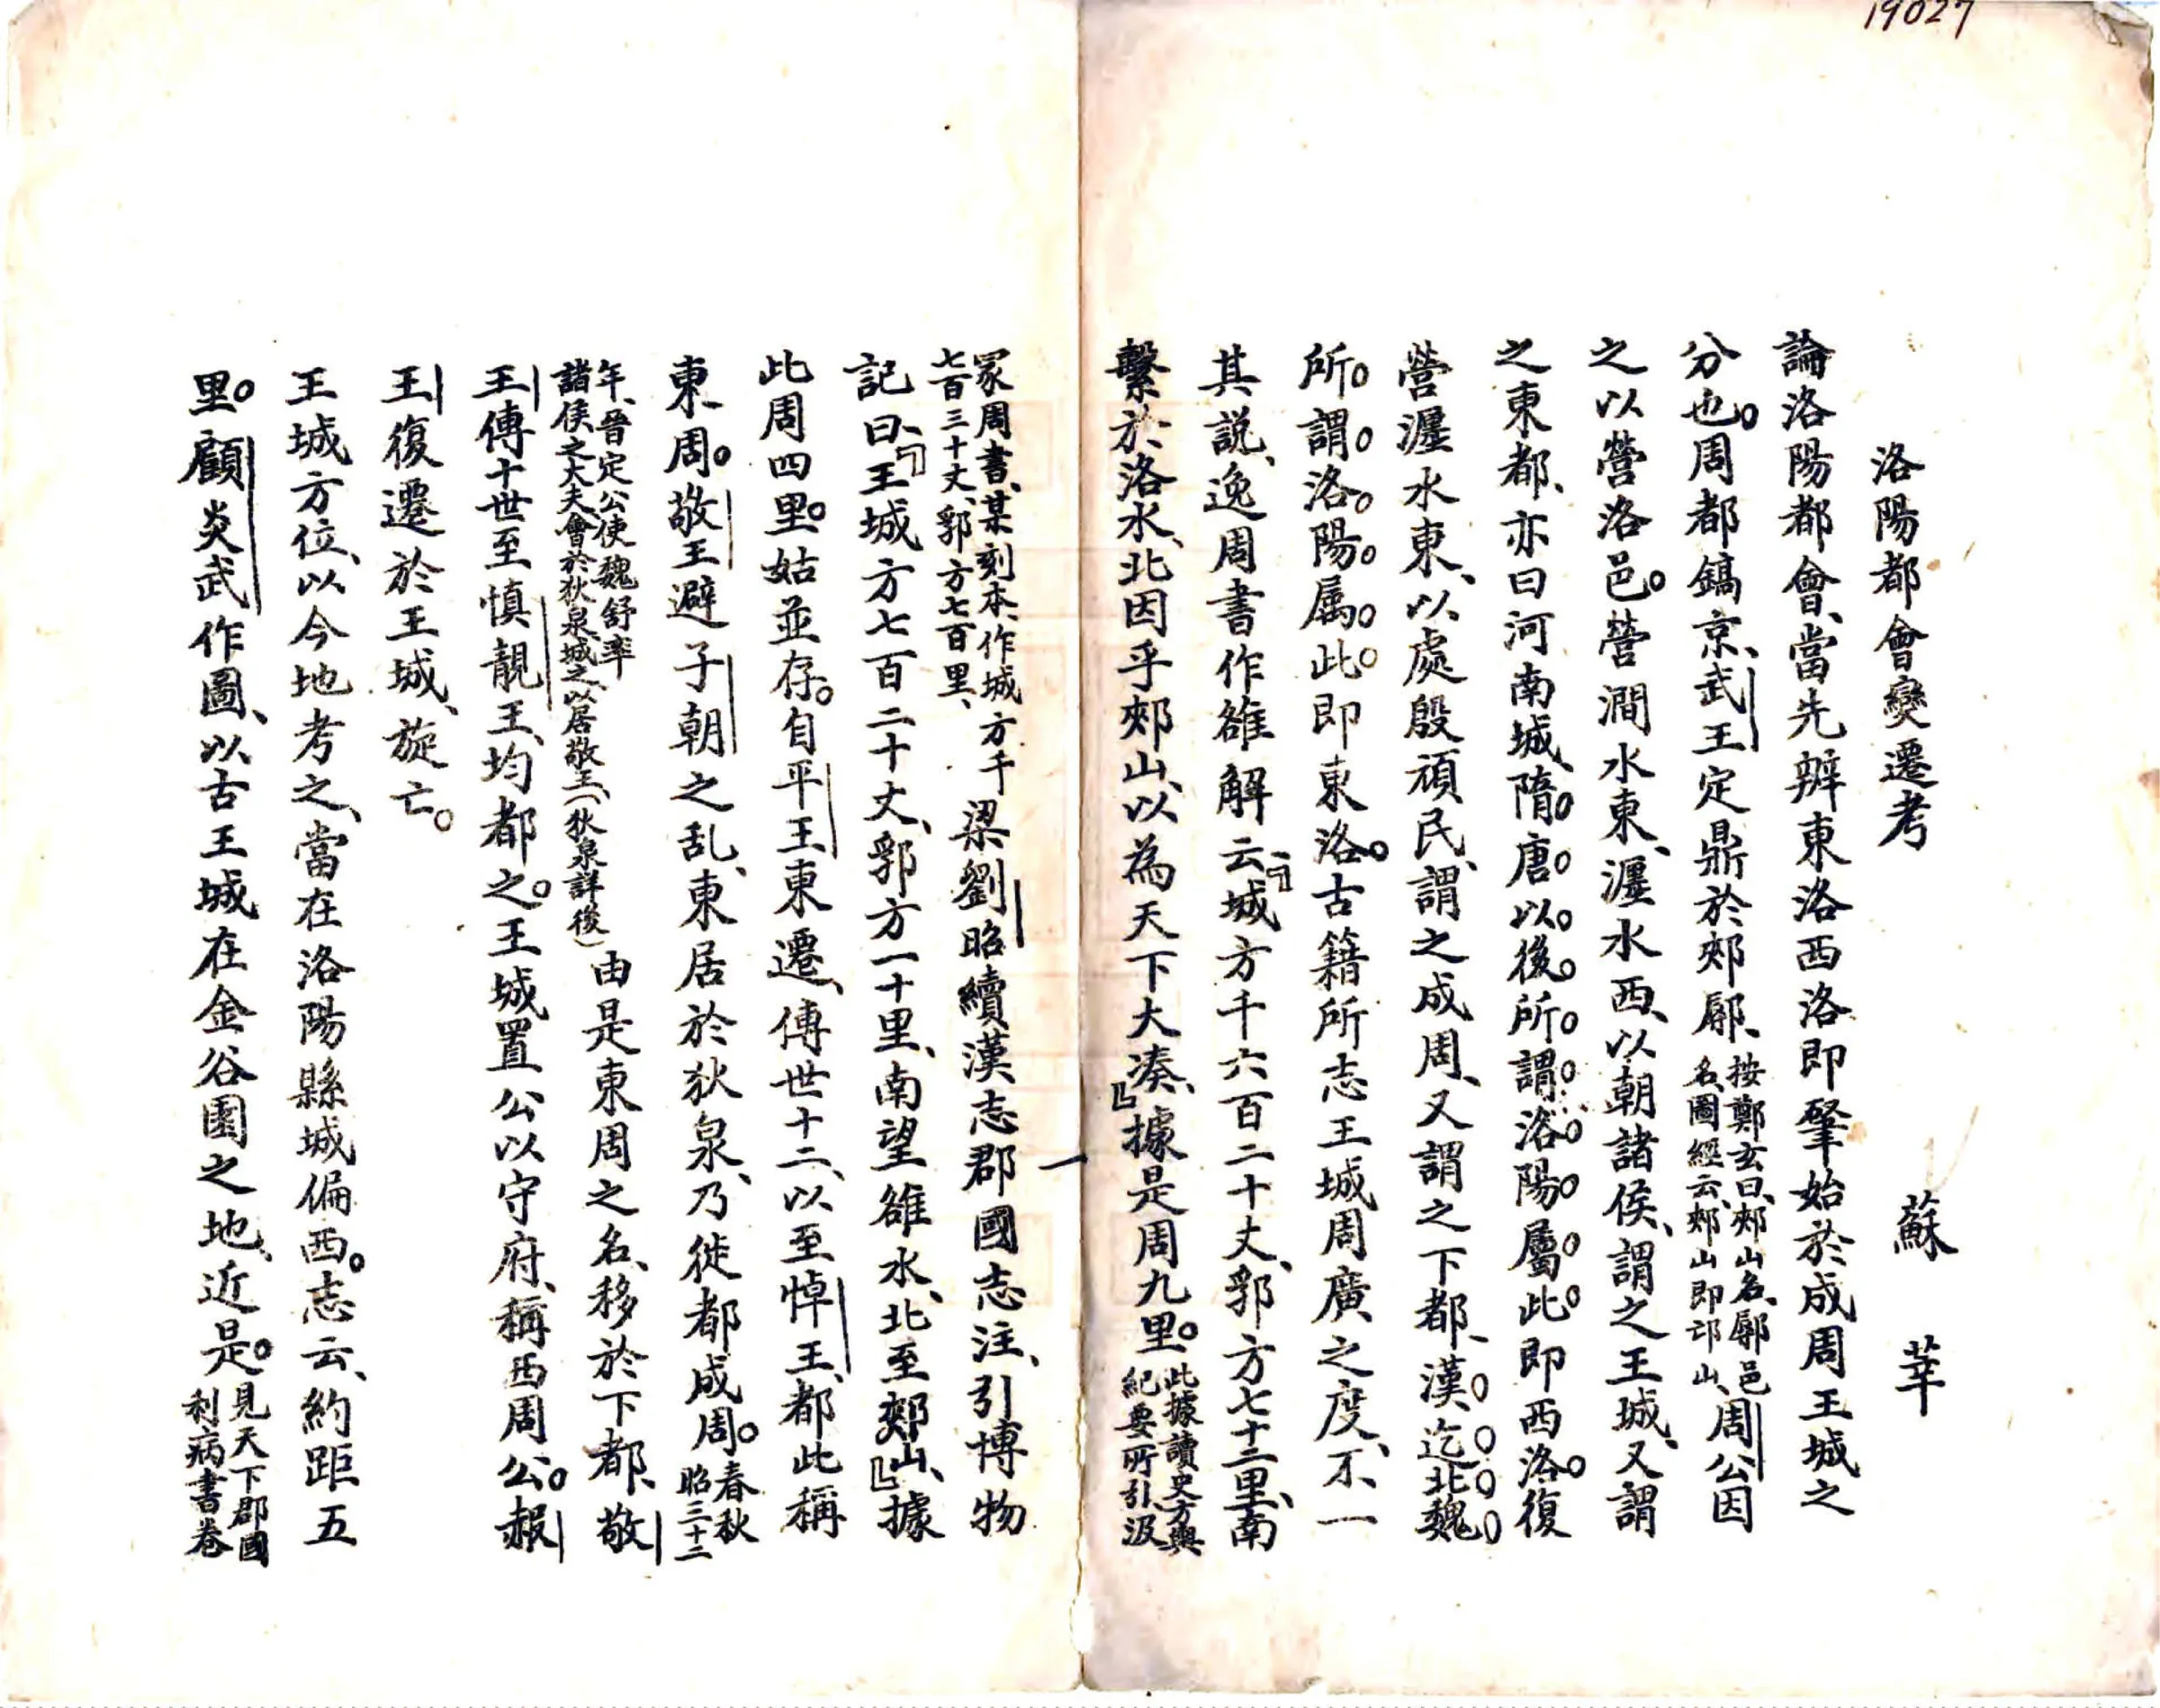 19027
洛陽都會變遷考　蘇莘
論洛陽都會、當先辨東洛西洛即肇始於成周王城之
分也。周都鎬京、武王定鼎於郟鄏、按鄭玄曰、郟山名、鄏邑名、圖經云、郟山即邙山、周公因
之以營洛邑。營澗水東、瀍水西、以朝諸侯、謂之王城、又謂
之東都、亦曰河南城、隋唐以後所謂洛陽屬此即西洛。復
營瀍水東、以處殷頑民、謂之成周、又謂之下都、漢迄北魏
所謂洛陽屬此即東洛。古籍所志王城周廣之度、不一
其説、逸周書作雒解云『城方千六百二十丈、郛方七十二里、南
繫於洛水、北因乎郟山、以為天下大湊、』據是周九里。此據讀史方輿紀要所引汲
一
冢周書、某刻本作城方千七百三十丈、郛方七百里、梁劉昭續漢志郡國志注、引博物
記曰、『王城方七百二十丈、郛方一十里、南望雒水、北至郟山、』據
此周四里。姑並存。自平王東遷、傳世十二、以至悼王、都此稱
東周。敬王避子朝之乱、東居於狄泉、乃徙都成周。春秋昭三十二
年、晉定公使魏舒率諸侯之大夫會於狄泉城之、以居敬王、(狄泉詳後)由是東周之名、移於下都、敬
王傳十世至慎靚王、均都之。王城置公以守府、稱西周公。赧
王復遷於王城、旋亡。
王城方位、以今地考之、當在洛陽縣城偏西。志云、約距五
里。顧炎武作圖、以古王城在金谷園之地、近是。見天下郡國利病書卷